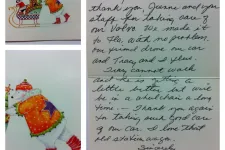 thank you, Jeanne and your
staff for taking care of
our Volvo. We made it
to Fla. with no problem,
our friend drove our car
and Tracy and I flew.
Tracy cannot walk
and he is getting a
little better, but will
be in a wheelchair a long
time. Thank you again
for taking such good care
of our car. I love that
old station wagon.
Sincerely